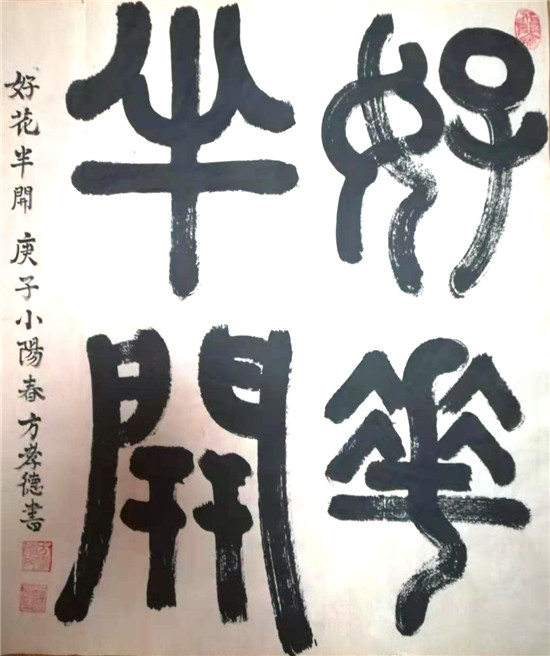 好花
半開
好花半開 庚子小陽春方孝德書